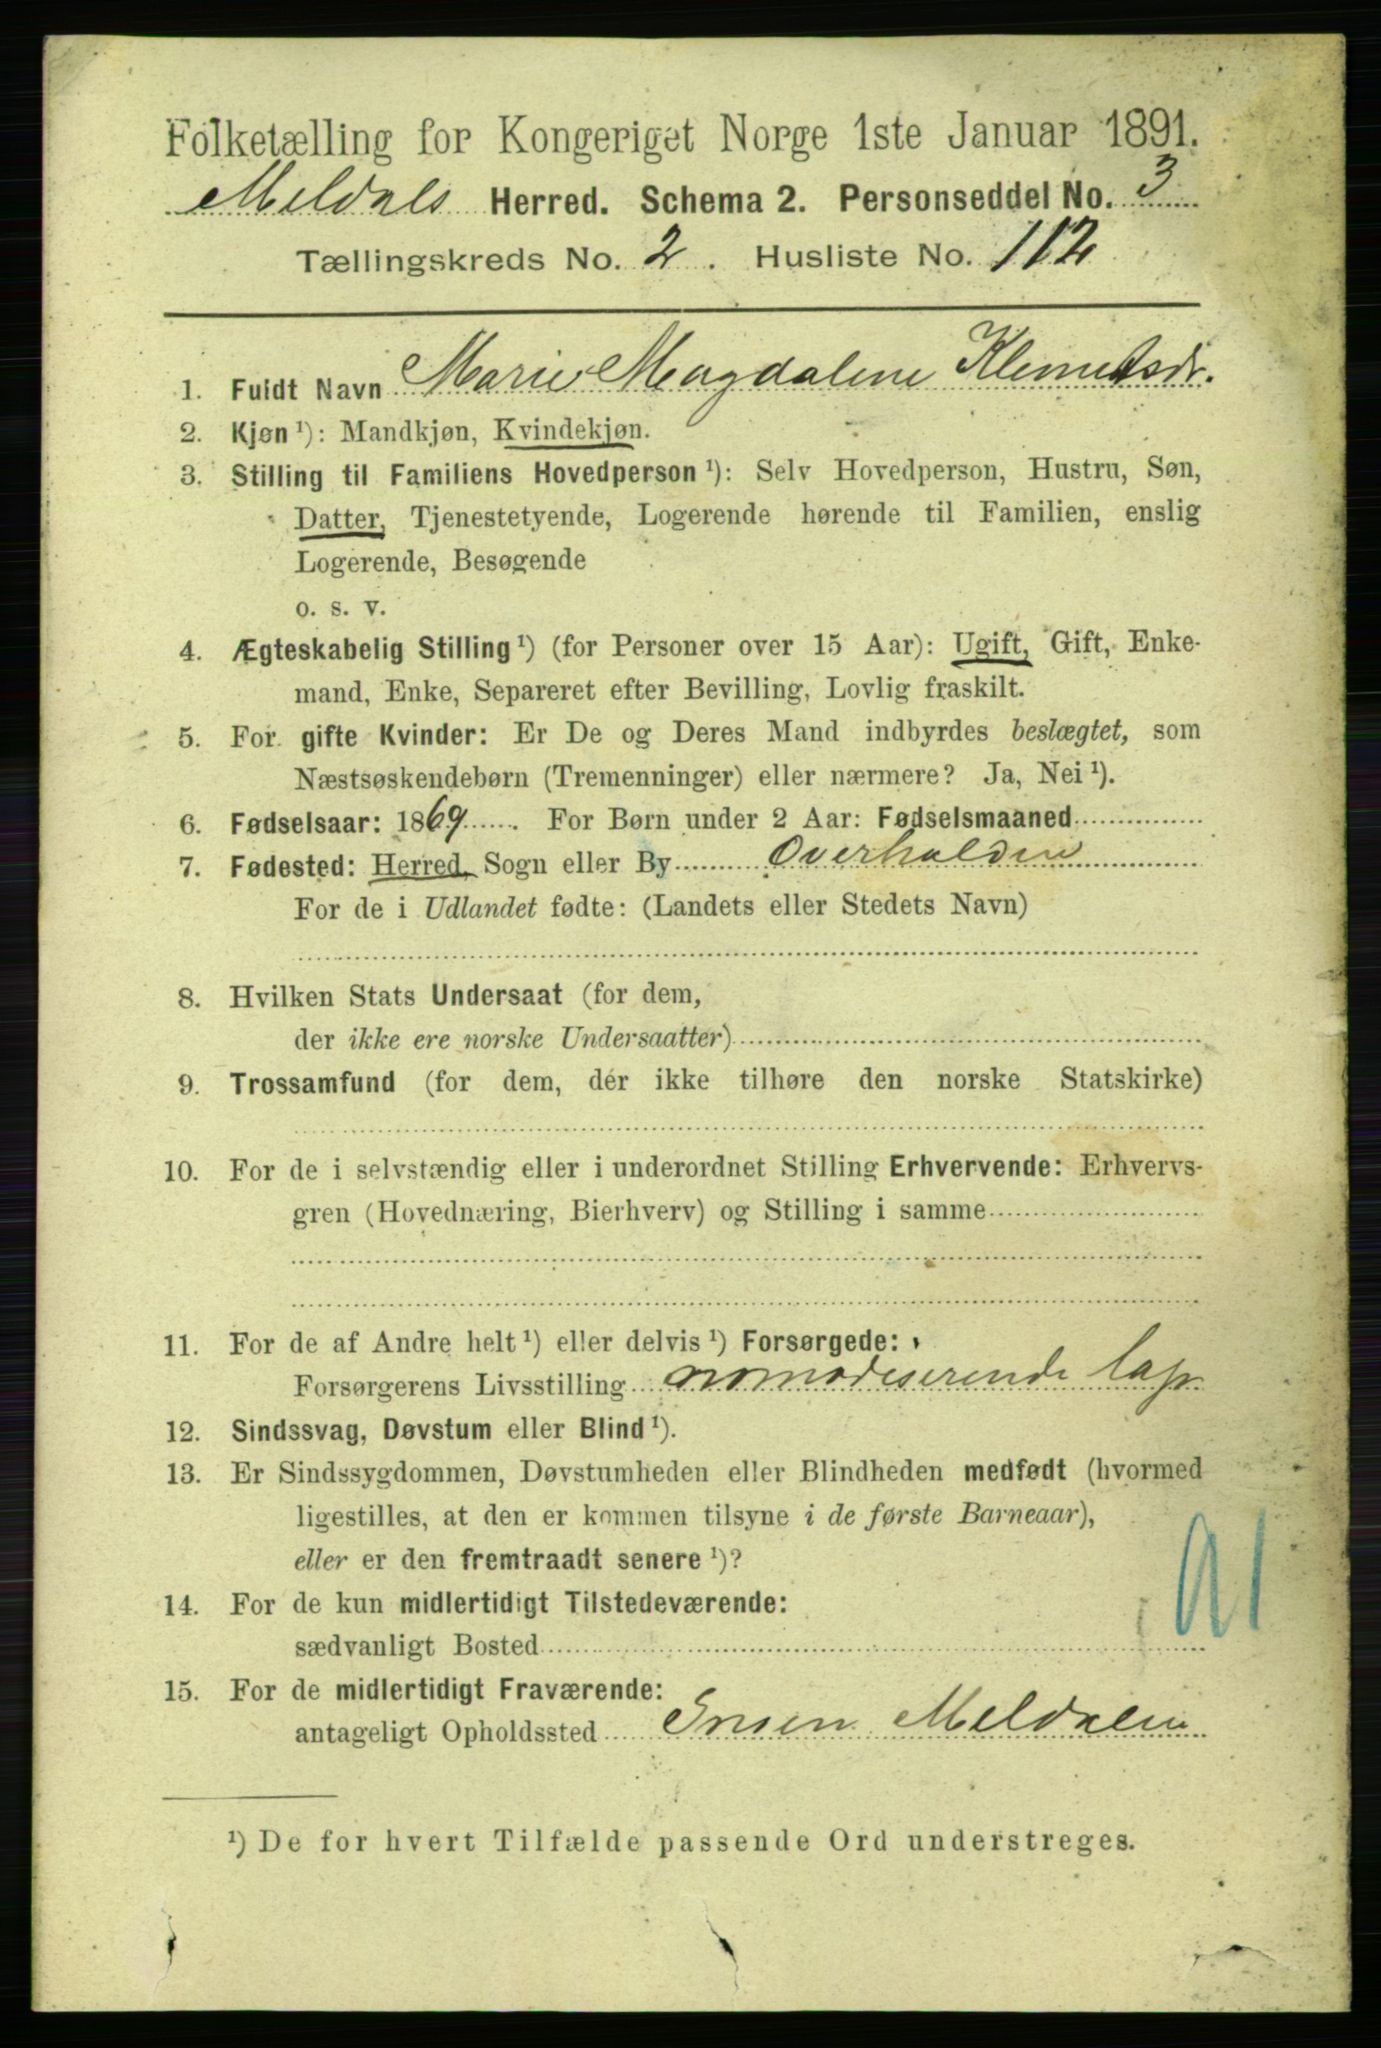 Folketælling for Kongeriget Norge 1ste Januar 1891.
Meldals Herred. Schema 2. Personseddel No. 3
Tællingskreds No. 2. Husliste No. 112
1. Fuldt Navn Marie Magdalene Klemetsdr.
2. Kjøn ¹): Mandkjøn, Kvindekjøn.
3. Stilling til Familiens Hovedperson ¹): Selv Hovedperson, Hustru, Søn,
Datter, Tjenestetyende, Logerende hørende til Familien, enslig
Logerende, Besøgende
o. s. v.
4. Ægteskabelig Stilling ¹) (for Personer over 15 Aar): Ugift, Gift, Enke-
mand, Enke, Separeret efter Bevilling, Lovlig fraskilt.
5. For gifte Kvinder: Er De og Deres Mand indbyrdes beslægtet, som
Næstsøskendebørn (Tremenninger) eller nærmere? Ja, Nei ¹).
6. Fødselsaar: 1869. For Børn under 2 Aar: Fødselsmaaned
7. Fødested: Herred, Sogn eller By Overhalden
For de i Udlandet fødte: (Landets eller Stedets Navn)
8. Hvilken Stats Undersaat (for dem,
der ikke ere norske Undersaatter)
9. Trossamfund (for dem, der ikke tilhøre den norske Statskirke)
10. For de i selvstændig eller i underordnet Stilling Erhvervende: Erhvervs-
gren (Hovednæring, Bierhverv) og Stilling i samme
11. For de af Andre helt ¹) eller delvis ¹) Forsørgede:
Forsørgerens Livsstilling nomadiserende lap
12. Sindssvag, Døvstum eller Blind ¹).
13. Er Sindssygdommen, Døvstumheden eller Blindheden medfødt (hvormed
ligestilles, at den er kommen tilsyne i de første Barneaar),
eller er den fremtraadt senere ¹)?
14. For de kun midlertidigt Tilstedeværende:
sædvanligt Bosted
15. For de midlertidigt Fraværende:
antageligt Opholdssted Meldalen
¹) De for hvert Tilfælde passende Ord understreges.